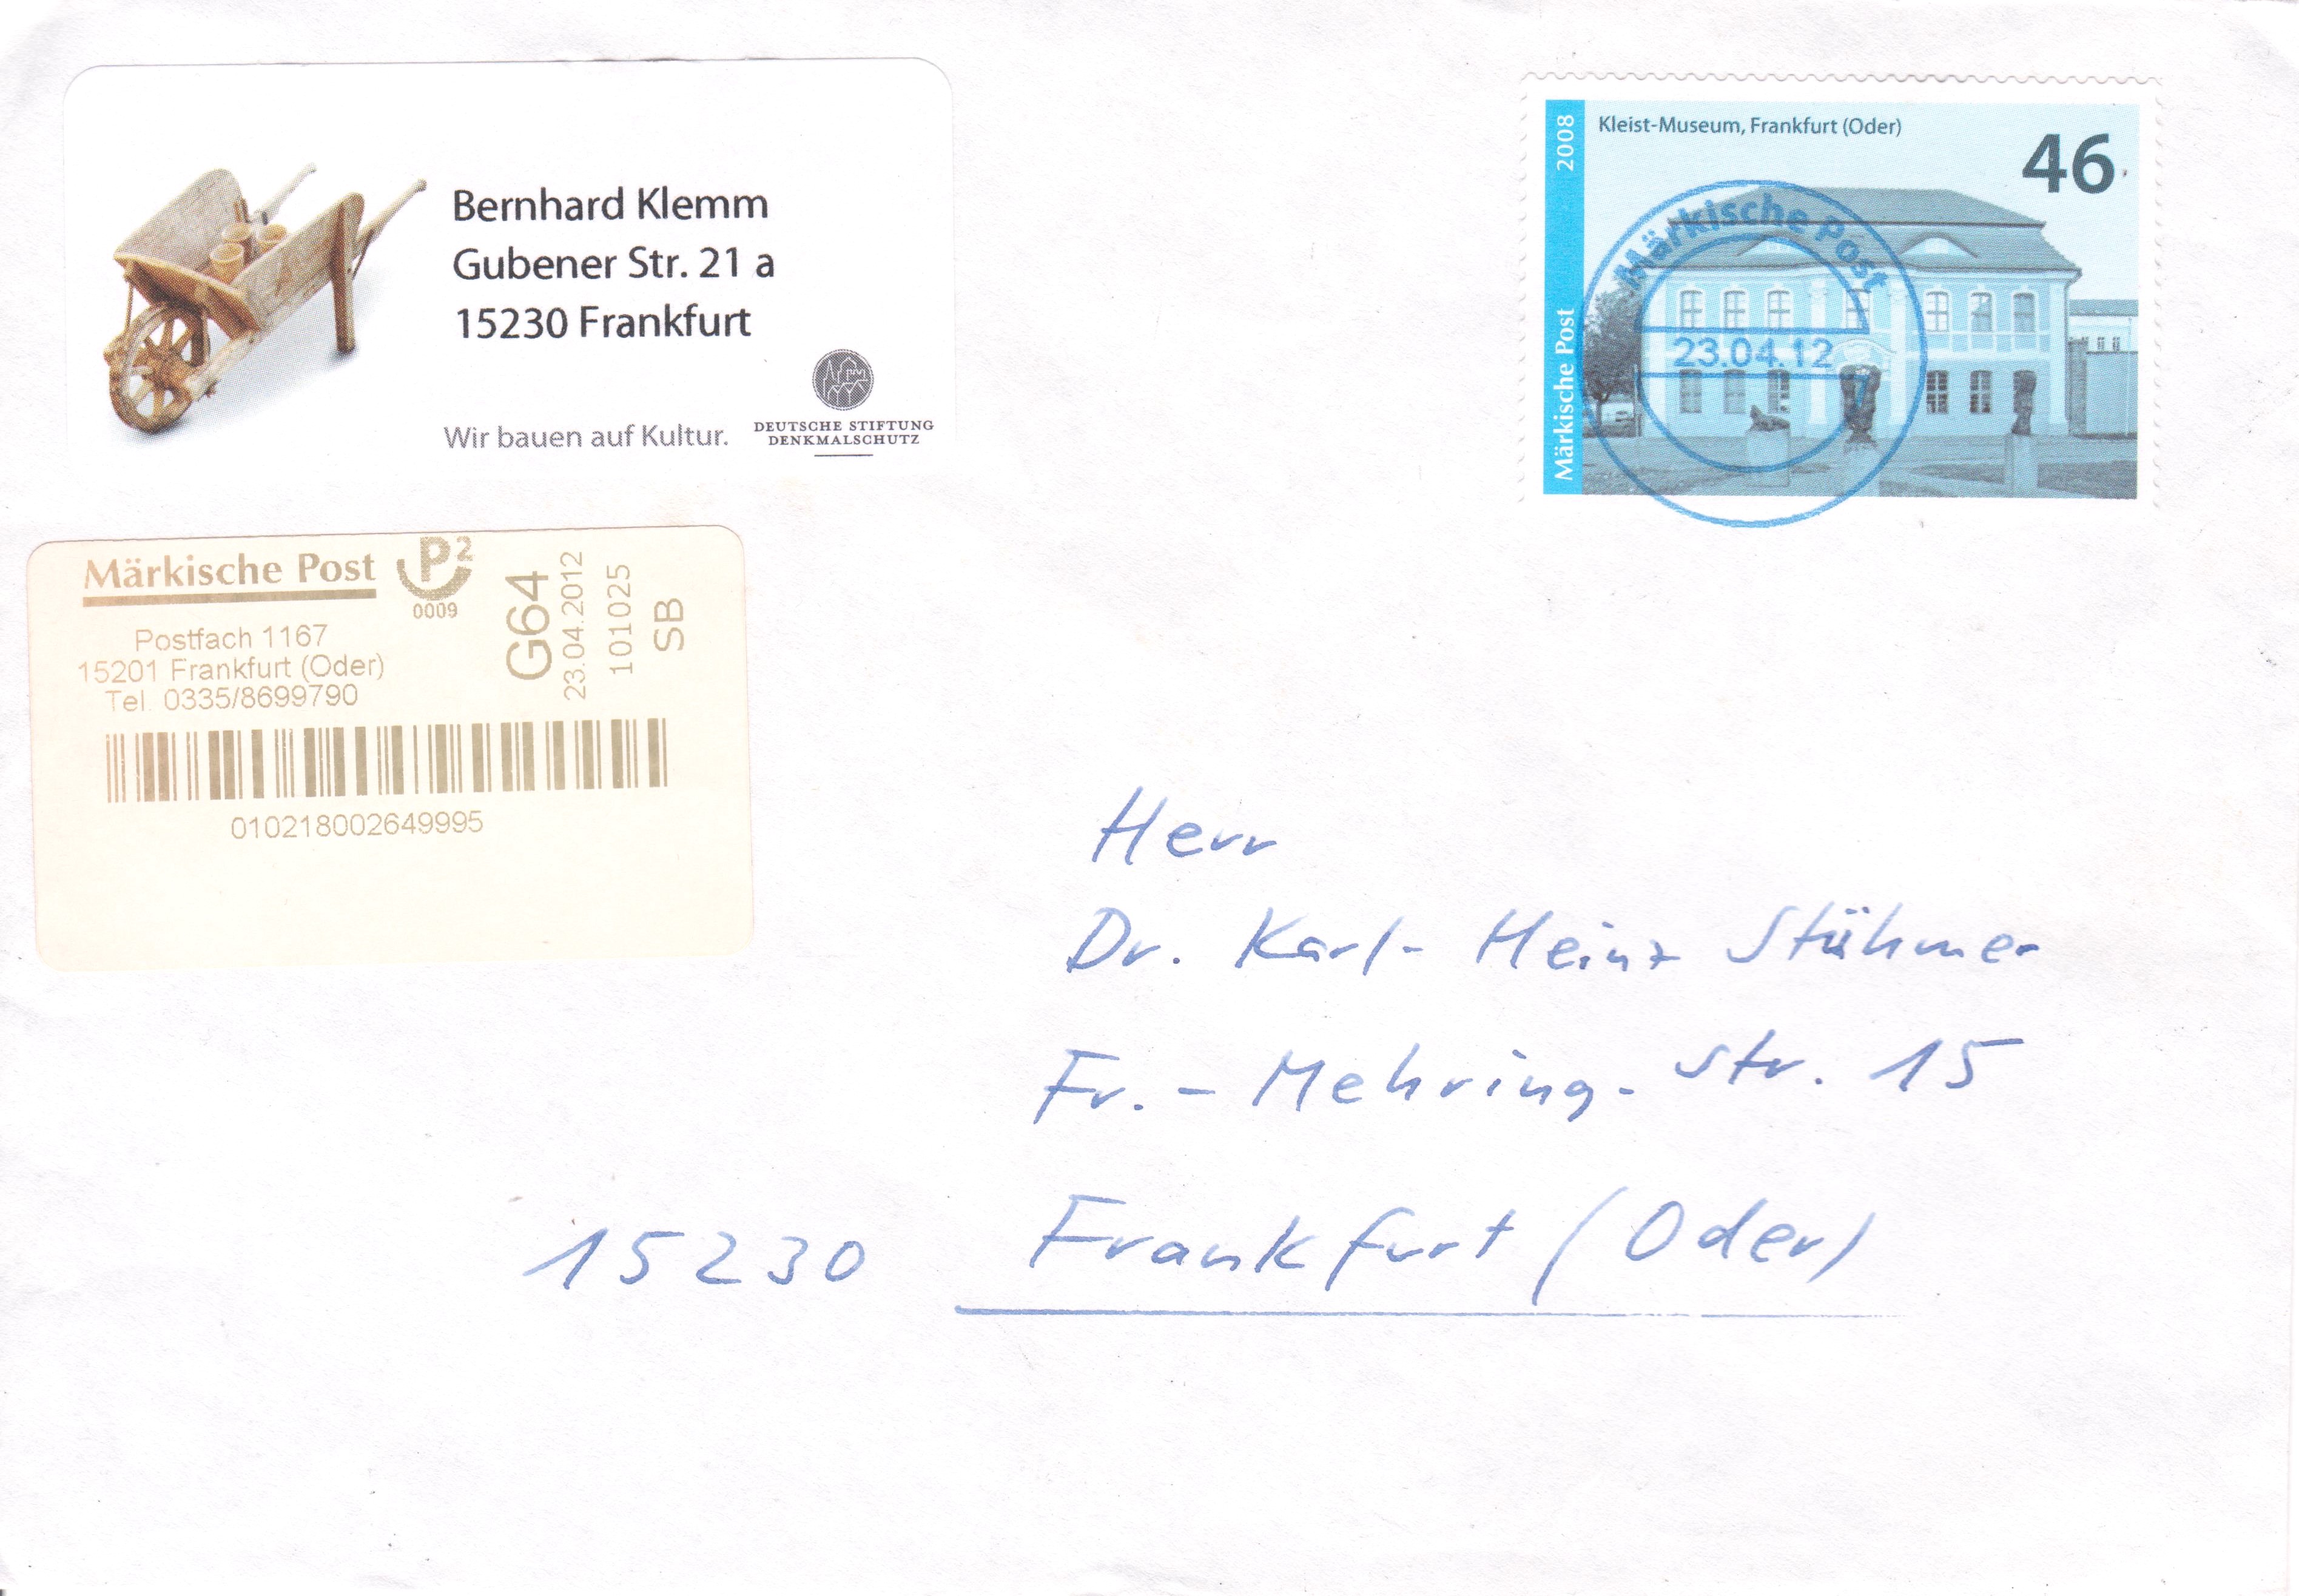 Bernhard Klemm
Gubener Str. 21 a
15230 Frankfurt
Wir bauen auf Kultur.
DEUTSCHE STIFTUNG
DENKMALSCHUTZ
Kleist-Museum, Frankfurt (Oder)
46
2008
Märkische Post
Märkische Post
23.04.12
7
Märkische Post
P2
0009
Postfach 1167
15201 Frankfurt (Oder)
Tel. 0335/8699790
G64
23.04.2012
101025
SB
010218002649995
Herr
Dr. Karl-Heinz Stühmer
Fr.-Mehring-Str. 15
15230 Frankfurt (Oder)